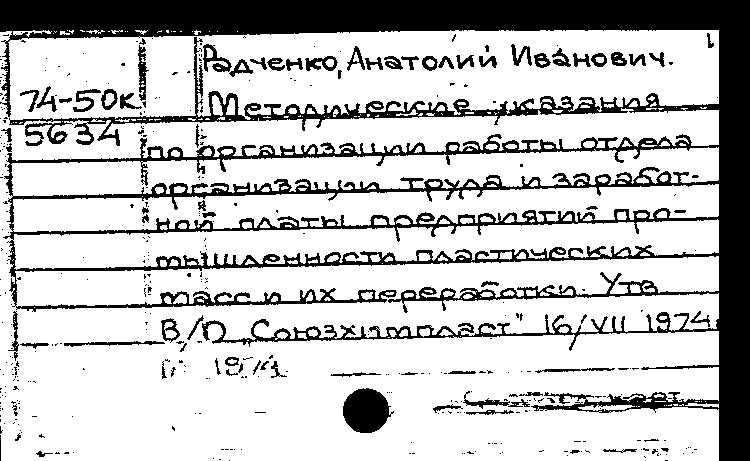 Радченко, Анатолий Иванович.
74-50к Методические указания
5634 по организации работы отдела
организации труда и заработ-
ной платы предприятий про-
мышленности пластических
масс и их переработки. Утв
В/О „Союзхимпласт" 16/VII 1974